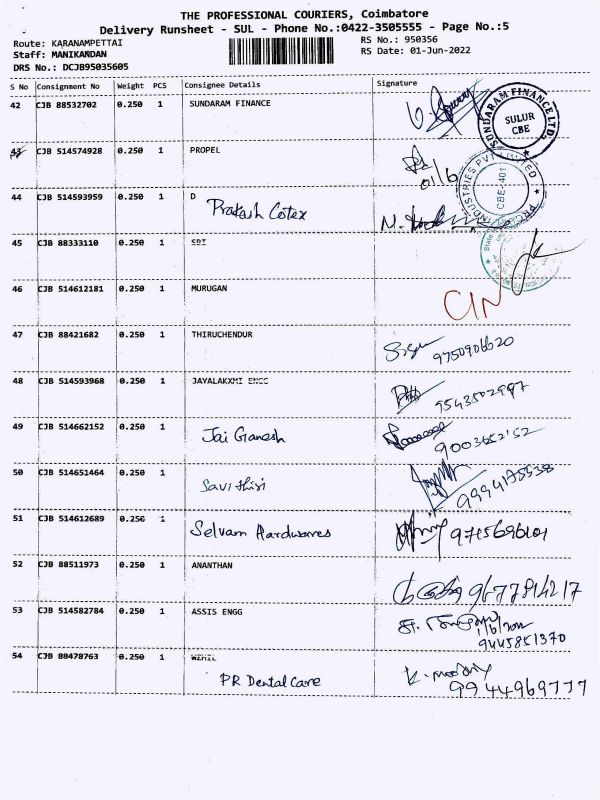 THE PROFESSIONAL COURIERS, Coimbatore
Delivery Runsheet - SUL - Phone No.:0422-3505555 - Page No.:5
Route: KARANAMPETTAI RS No.: 950356
Staff: MANIKANDAN RS Date: 01-Jun-2022
DRS No.: DCJB95035605
S No Consignment No Weight PCS Consignee Details Signature
42 CJB 88532702 0.250 1 SUNDARAM FINANCE
SUNDARAM FINANCE LTD.
SULUR
CBE
43 CJB 514574928 0.250 1 PROPEL
01/6
INDUSTRIES PVT LIMITED
CBE-401
44 CJB 514593959 0.250 1 D
Prakash Cotex
45 CJB 88333110 0.250 1 SBI
State
46 CJB 514612181 0.250 1 MURUGAN
CIN
47 CJB 88421682 0.250 1 THIRUCHENDUR
9750906620
48 CJB 514593968 0.250 1 JAYALAKXMI ENGG
9543502997
49 CJB 514662152 0.250 1
Jai Ganesh
9003652152
50 CJB 514651464 0.250 1
Savithiri
9994175538
51 CJB 514612689 0.250 1
Selvam Hardwares
9715696101
52 CJB 88511973 0.250 1 ANANTHAN
9677814217
53 CJB 514582784 0.250 1 ASSIS ENGG
1/6/2022
9445851370
54 CJB 88478763 0.250 1
PR Dental Care
99 44969777